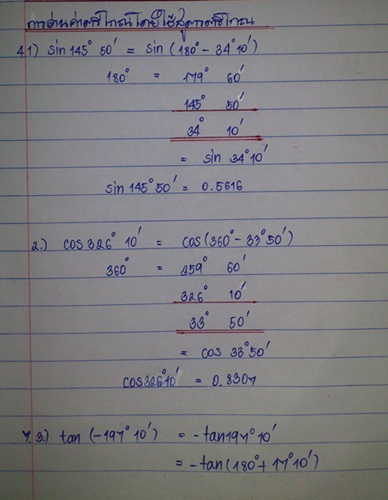 การอ่านค่าตรีโกณโดยใช้สูตรตรีโกณ
4.1) sin 145° 50′ = sin (180° - 34° 10′)
180° = 179° 60′
145° 50′
34° 10′
= sin 34° 10′
sin 145° 50′ = 0.5616
2.) cos 326° 10′ = cos (360° - 33° 50′)
360° = 359° 60′
326° 10′
33° 50′
= cos 33° 50′
cos 326° 10′ = 0.8307
3.) tan (-197° 10′) = -tan 197° 10′
= -tan (180° + 17° 10′)